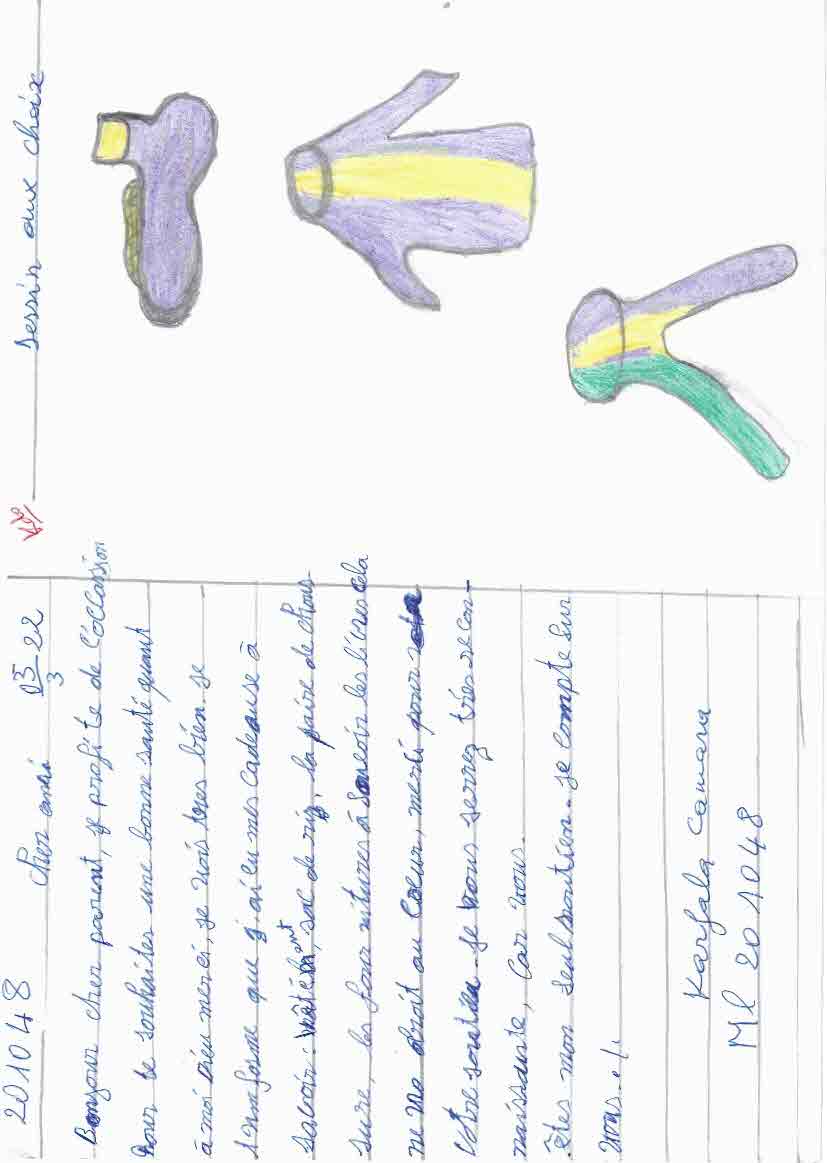 201048 cher ami 03 22
3
Bonjour cher parient, je profite de l'occassion
pour te souhaiter une bonne santé quant
à moi Dieu merci, je vais tres bien. je
t'informe que j'ai eu mes cadeause à
savoir: vêtement, sac de riz, la paire de chous-
sure, les fournitures à savoir les livres cela
me va droit au coeur, merci pour
Votre soutien. je vous serrez très recon-
naissante, Car vous.
êtes mon seul soutien. je compte sur
vous. e/.
Karfala Camara
Ml 201048
dessin aux choix